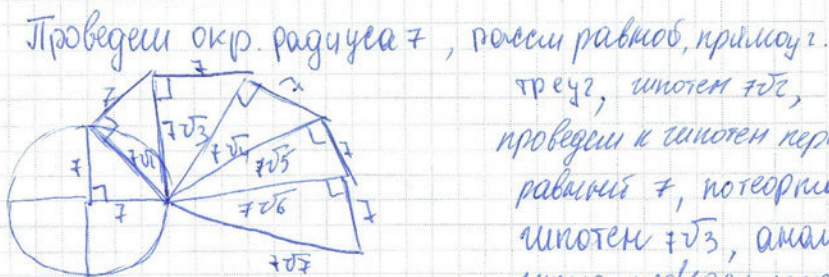 Проведем окр. радиуса 7, рассм равноб, прямоуг.
треуг, гипотен 7√2,
проведем к гипотен пер
равный 7, по теорем
гипотен 7√3, анал
7
7
7
7
7
7
7
7
7√2
7√3
7√4
7√5
7√6
7√7